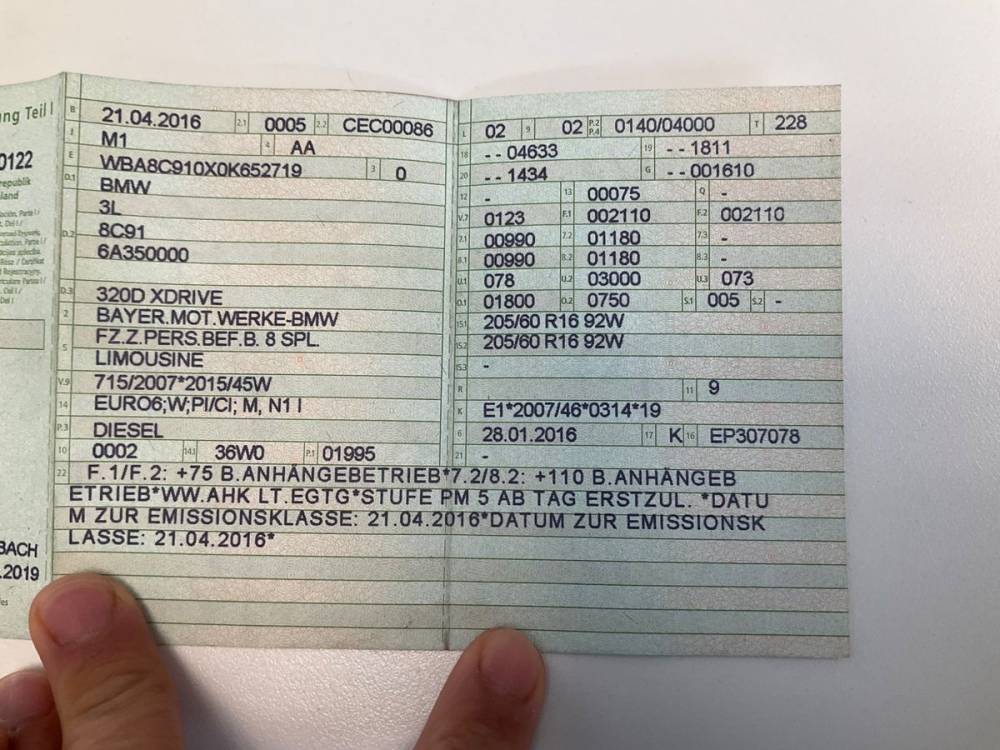 ng Teil I
0122
republik
land
BACH
.2019
B 21.04.2016 2.1 0005 2.2 CEC00086
J M1 4 AA
E WBA8C910X0K652719 3 0
D.1 BMW
3L
D.2 8C91
6A350000
D.3 320D XDRIVE
2 BAYER.MOT.WERKE-BMW
5 FZ.Z.PERS.BEF.B. 8 SPL.
LIMOUSINE
V.9 715/2007*2015/45W
14 EURO6;W;PI/CI; M, N1 I
P.3 DIESEL
10 0002 14.1 36W0 P.1 01995
L 02 9 02 P.2 P.4 0140/04000 T 228
18 --04633 19 --1811
20 --1434 G --001610
12 - 13 00075 Q -
V.7 0123 F.1 002110 F.2 002110
7.1 00990 7.2 01180 7.3 -
8.1 00990 8.2 01180 8.3 -
U.1 078 U.2 03000 U.3 073
O.1 01800 O.2 0750 S.1 005 S.2 -
15.1 205/60 R16 92W
15.2 205/60 R16 92W
15.3 -
R 11 9
K E1*2007/46*0314*19
6 28.01.2016 17 K 16 EP307078
21 -
22 F.1/F.2: +75 B.ANHÄNGEBETRIEB*7.2/8.2: +110 B.ANHÄNGEB
ETRIEB*WW.AHK LT.EGTG*STUFE PM 5 AB TAG ERSTZUL. *DATU
M ZUR EMISSIONSKLASSE: 21.04.2016*DATUM ZUR EMISSIONSK
LASSE: 21.04.2016*